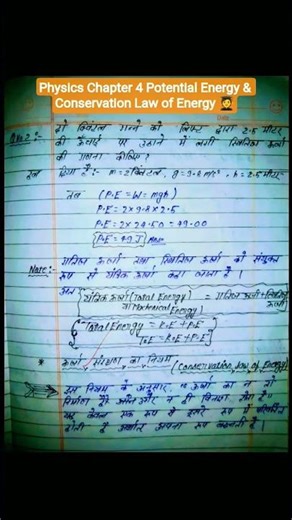 Physics Chapter 4 Potential Energy &
Conservation Law of Energy
दो क्विंटल गन्ने को लिफ्ट द्वारा 2.5 मीटर
की ऊँचाई पर उठाने में लगी स्थितिज ऊर्जा
की गणना कीजिए?
हल दिया है:- m = 2 क्विंटल, g = 9.8 m/s², h = 2.5 मीटर
(P.E = W = mgh)
P.E = 2×9.8×2.5
P.E = 2×24.50 = 49.00
P.E = 49 J
Note:- गतिज ऊर्जा तथा स्थितिज ऊर्जा को संयुक्त
रूप से यांत्रिक ऊर्जा कहा जाता है।
यांत्रिक ऊर्जा (Total Energy = गतिज ऊर्जा + स्थितिज ऊर्जा
Mechanical Energy)
Total Energy = K.E + P.E
T.E = K.E + P.E
ऊर्जा संरक्षण का नियम (Conservation law of Energy)
इस नियम के अनुसार, "ऊर्जा का न तो
निर्माण और न ही विनाश होता है"
यह केवल एक रूप से दूसरे रूप में परिवर्तित
होती है अर्थात अपना रूप बदलती है।